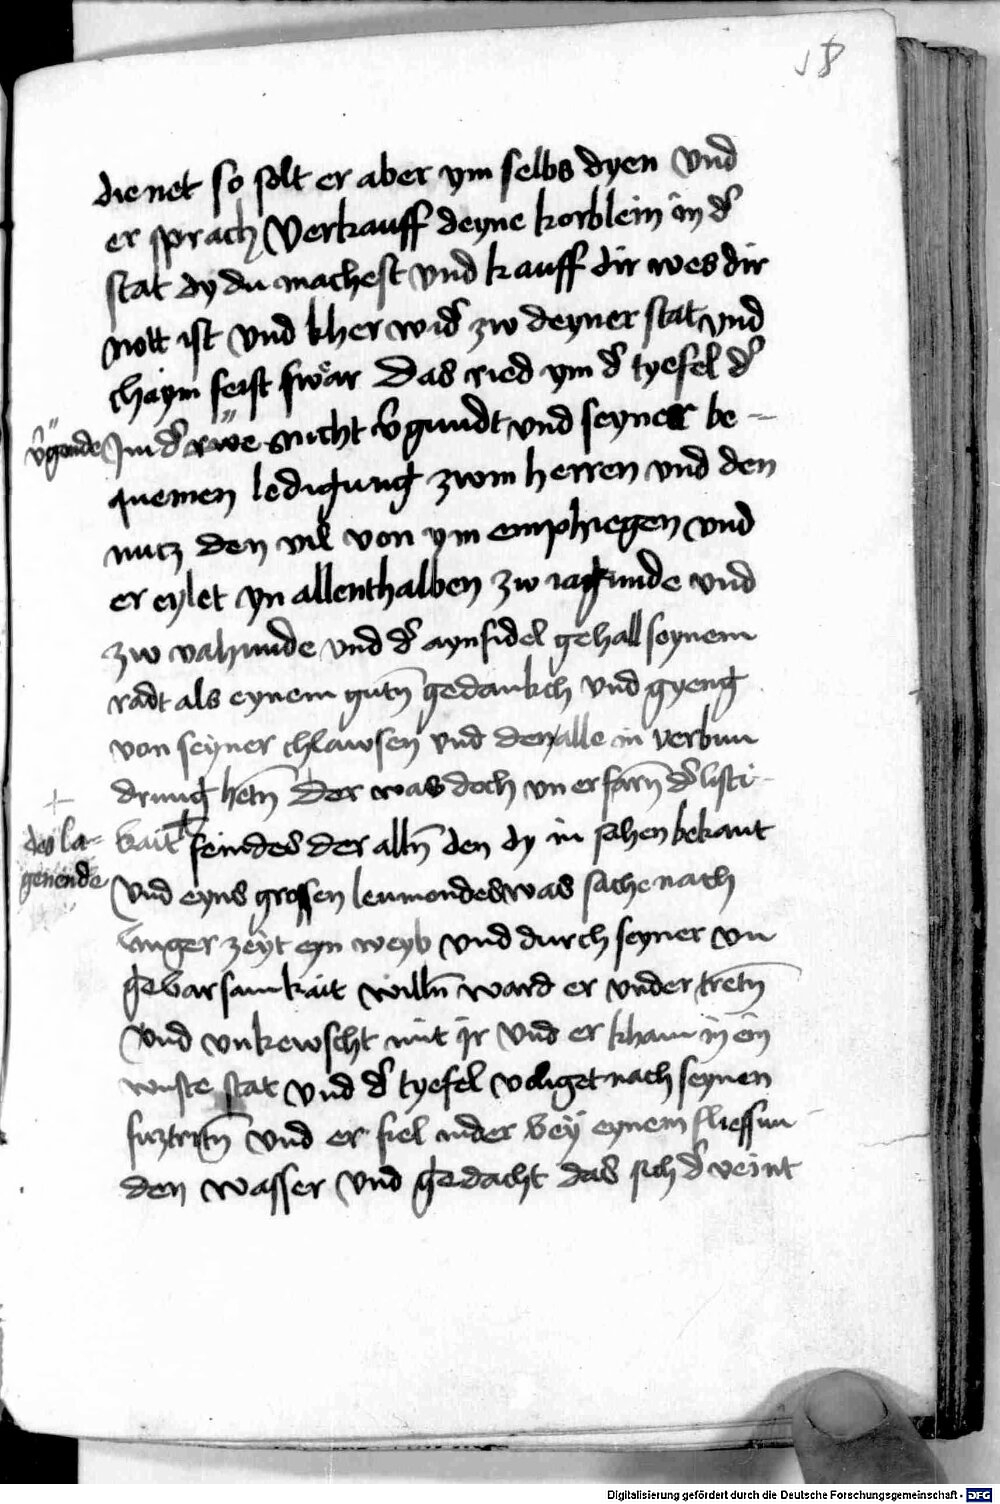 18
dienet so solt er aber ym selbs dyen Vnd
er sprach Verkauff deyne korblein in d'
stat dy du machest Vnd kauff dir wes dir
nott ist Vnd kher wid' zw deyner stat vnd
chaym ferst swär Das ried ym d' tyefel d'
v̄gende Im d' rwe nicht v̄gundt vnd seyner be-
quemen ledigung zwm herren vnd den
nutz den vil von ym emphiegen vnd
er eylet yn allenthalben zw iagunde vnd
zw vahunde vnd d' aynfidel gehall seynem
radt als eynem gutn̄ gedankch vnd gyeng
von seyner chlawsen vnd den alle in verbun
drung hetn̄ Der was doch vn erfarn̄ d' listi-
kait feindes der alln̄ den dy in sahen bekant
des la-
genende
Vnd eyns grossen leumondes was sache nach
langer zeyt eyn weyb vnd durch seyner vn
gebarsamkait willn̄ ward er vnder tretn̄
Vnd vnkewscht mit ir Vnd er kham in ein
wuste stat vnd d' tyefel volget nach seynen
fuztritn̄ Vnd er fiel nider bey eynem fliessun
den wasser vnd gedacht das sich d' veint
Digitalisierung gefördert durch die Deutsche Forschungsgemeinschaft - DFG